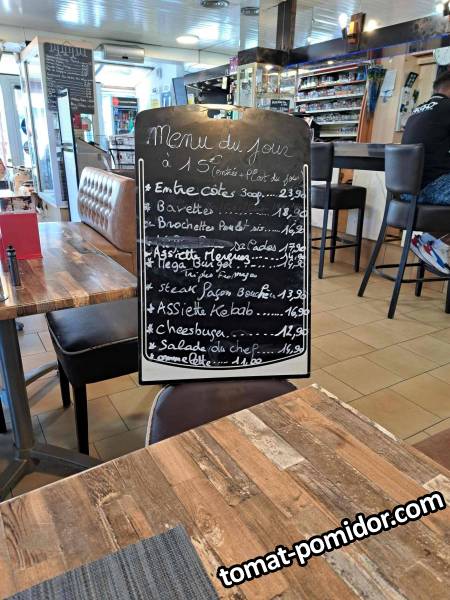 Menu du jour
à 15€ (entrée + Plat du jour
* Entre côtes 300g.... 23,90
* Bavettes ........... 18,90
* Brochettes Poulet ... 16,90
salades .... 17,90
* Assiette Merguez
* Mega Burger
* steak façon Boucher 13,90
* ASSiette Kebab ... 16,90
* Cheesburger ...... 12,90
* Salade du chef .... 14,90
* ommelette ..... 11,00
tomat-pomidor.com